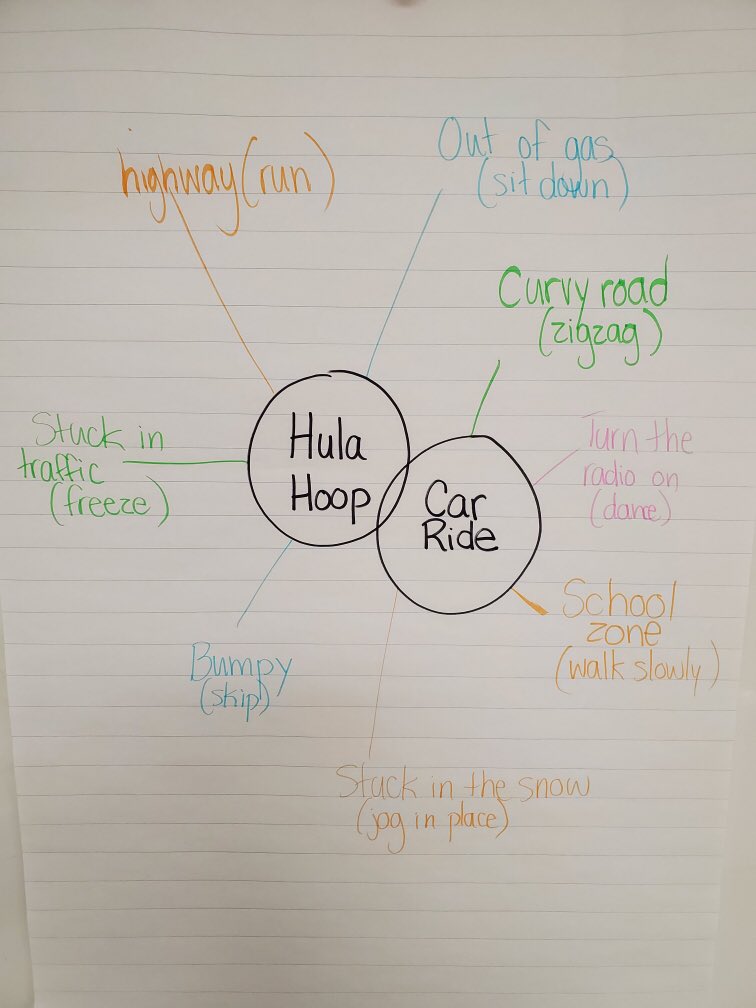 highway (run)
Out of gas
(sit down)
Curvy road
(zigzag)
Stuck in
traffic
(freeze)
Hula
Hoop
Car
Ride
Turn the
radio on
(dance)
School
zone
(walk slowly)
Bumpy
(skip)
Stuck in the snow
(jog in place)